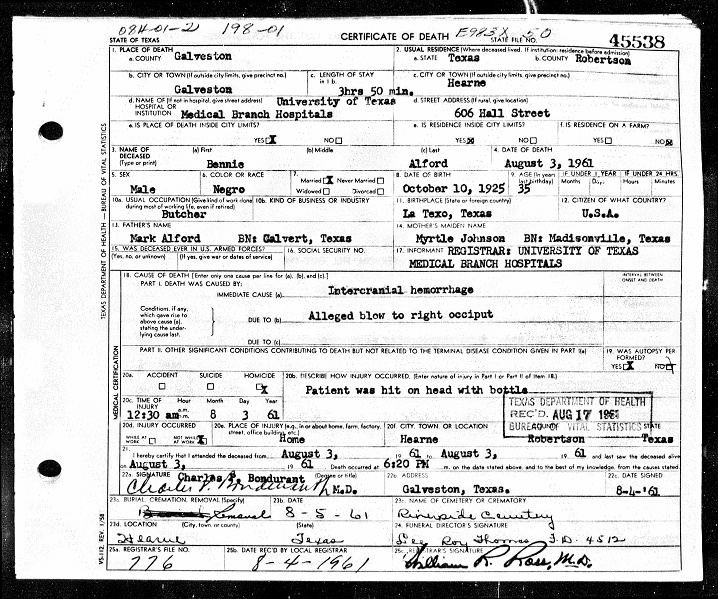 08401-2 198-01 E983X 50
STATE OF TEXAS CERTIFICATE OF DEATH STATE FILE NO. 45538
1. PLACE OF DEATH 2. USUAL RESIDENCE (Where deceased lived. If institution: residence before admission)
a. COUNTY Galveston a. STATE Texas b. COUNTY Robertson
b. CITY OR TOWN (If outside city limits, give precinct no.) c. LENGTH OF STAY in 1 b. c. CITY OR TOWN (If outside city limits, give precinct no.)
Galveston 3hrs 50 min. Hearne
d. NAME OF (If not in hospital, give street address) HOSPITAL OR INSTITUTION University of Texas Medical Branch Hospitals d. STREET ADDRESS (If rural, give location)
606 Hall Street
e. IS PLACE OF DEATH INSIDE CITY LIMITS? e. IS RESIDENCE INSIDE CITY LIMITS? f. IS RESIDENCE ON A FARM?
YES X NO YES X NO YES NO X
3. NAME OF DECEASED (Type or print) (a) First (b) Middle (c) Last 4. DATE OF DEATH
Bennie Alford August 3, 1961
5. SEX 6. COLOR OR RACE 7. Married X Never Married Widowed Divorced 8. DATE OF BIRTH 9. AGE (In years last birthday) IF UNDER 1 YEAR Months Days IF UNDER 24 HRS. Hours Minutes
Male Negro October 10, 1925 35
10a. USUAL OCCUPATION (Give kind of work done during most of working life, even if retired) 10b. KIND OF BUSINESS OR INDUSTRY 11. BIRTHPLACE (State or foreign country) 12. CITIZEN OF WHAT COUNTRY?
Butcher La Texo, Texas U.S.A.
13. FATHER'S NAME 14. MOTHER'S MAIDEN NAME
Mark Alford BN: Calvert, Texas Myrtle Johnson BN: Madisonville, Texas
15. WAS DECEASED EVER IN U.S. ARMED FORCES? (Yes, no, or unknown) (If yes, give war or dates of service) 16. SOCIAL SECURITY NO. 17. INFORMANT REGISTRAR: UNIVERSITY OF TEXAS
MEDICAL BRANCH HOSPITALS
18. CAUSE OF DEATH [Enter only one cause per line for (a), (b), and (c).] INTERVAL BETWEEN ONSET AND DEATH
PART I. DEATH WAS CAUSED BY:
IMMEDIATE CAUSE (a) Intercranial hemorrhage
Conditions, if any, which gave rise to above cause (a), stating the underlying cause last.
DUE TO (b) Alleged blow to right occiput
DUE TO (c)
PART II. OTHER SIGNIFICANT CONDITIONS CONTRIBUTING TO DEATH BUT NOT RELATED TO THE TERMINAL DISEASE CONDITION GIVEN IN PART I(a) 19. WAS AUTOPSY PERFORMED?
YES X NO
20a. ACCIDENT SUICIDE HOMICIDE 20b. DESCRIBE HOW INJURY OCCURRED. (Enter nature of injury in Part I or Part II of item 18.)
X Patient was hit on head with bottle
20c. TIME OF INJURY Hour Month Day Year
12:30 am 8 3 61
TEXAS DEPARTMENT OF HEALTH
REC'D. AUG 17 1961
BUREAU OF VITAL STATISTICS
20d. INJURY OCCURRED WHILE AT WORK NOT WHILE AT WORK X 20e. PLACE OF INJURY (e.g., in or about home, farm, factory, street, office building, etc.) 20f. CITY, TOWN, OR LOCATION COUNTY STATE
Home Hearne Robertson Texas
21. I hereby certify that I attended the deceased from August 3, 1961 to August 3, 1961 and last saw the deceased alive
on August 3, 1961 Death occurred at 6:20 PM m. on the date stated above, and to the best of my knowledge, from the causes stated.
22a. SIGNATURE Charles P. Bondurant (Degree or title) 22b. ADDRESS 22c. DATE SIGNED
Charles P. Bondurant M.D. Galveston, Texas. 8-4-'61
23a. BURIAL, CREMATION, REMOVAL (Specify) 23b. DATE 23c. NAME OF CEMETERY OR CREMATORY
Removal 8-5-61 Riverside Cemetery
23d. LOCATION (City, town, or county) (State) 24. FUNERAL DIRECTOR'S SIGNATURE
Hearne Texas Lee Roy Thomas F.D. 4512
25a. REGISTRAR'S FILE NO. 25b. DATE REC'D BY LOCAL REGISTRAR 25c. REGISTRAR'S SIGNATURE
776 8-4-1961 William R. Ross, M.D.
TEXAS DEPARTMENT OF HEALTH — BUREAU OF VITAL STATISTICS
MEDICAL CERTIFICATION
VS-112 REV. 1/58